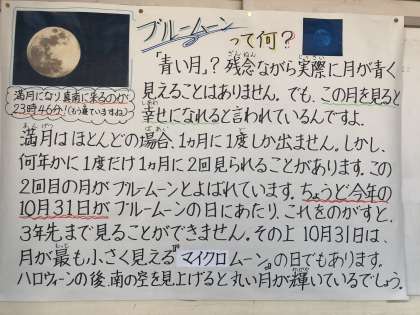 ブルームーンって何？
満月になり真南に来るのが
23時46分！（もう寝ていますね）
「青い月」？残念ながら実際に月が青く
見えることはありません。でも、この月を見ると
幸せになれると言われているんですよ。
満月はほとんどの場合、1ヵ月に1度しか出ません。しかし、
何年かに1度だけ1ヵ月に2回見られることがあります。この
2回目の月がブルームーンとよばれています。ちょうど今年の
10月31日がブルームーンの日にあたり、これをのがすと、
3年先まで見ることができません。その上10月31日は、
月が最も小さく見える"マイクロムーン"の日でもあります。
ハロウィーンの後、南の空を見上げると丸い月が輝いているでしょう。